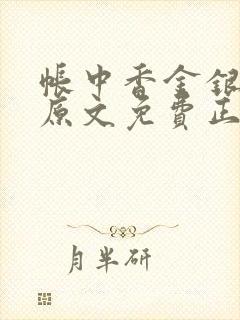 帳中香金銀
原文免費正
月半研